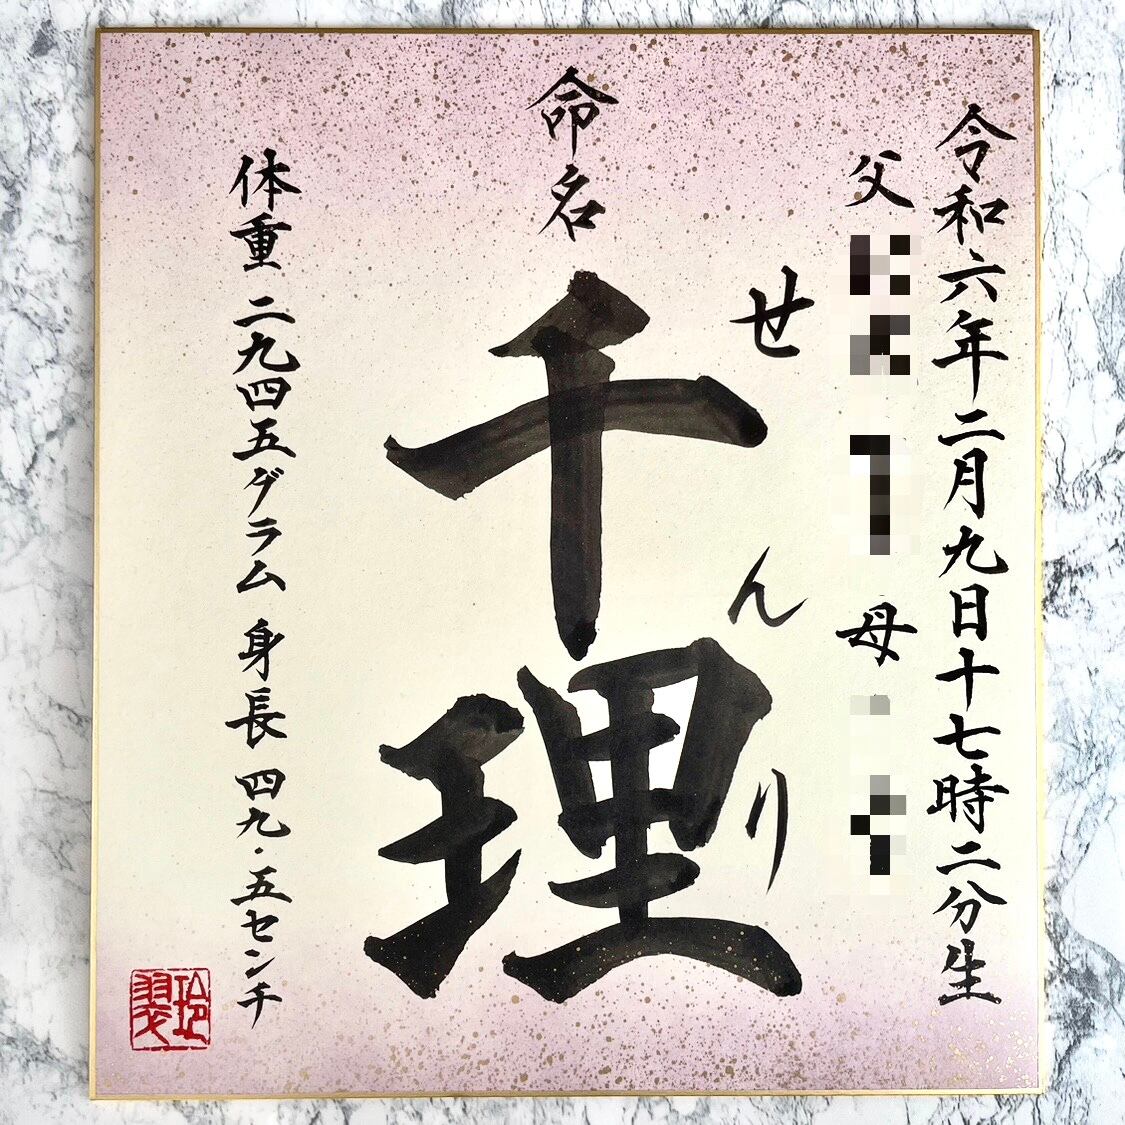 令和六年二月九日十七時二分生
父
母
せんり
命名
千理
体重 二九四五グラム 身長 四九・五センチ